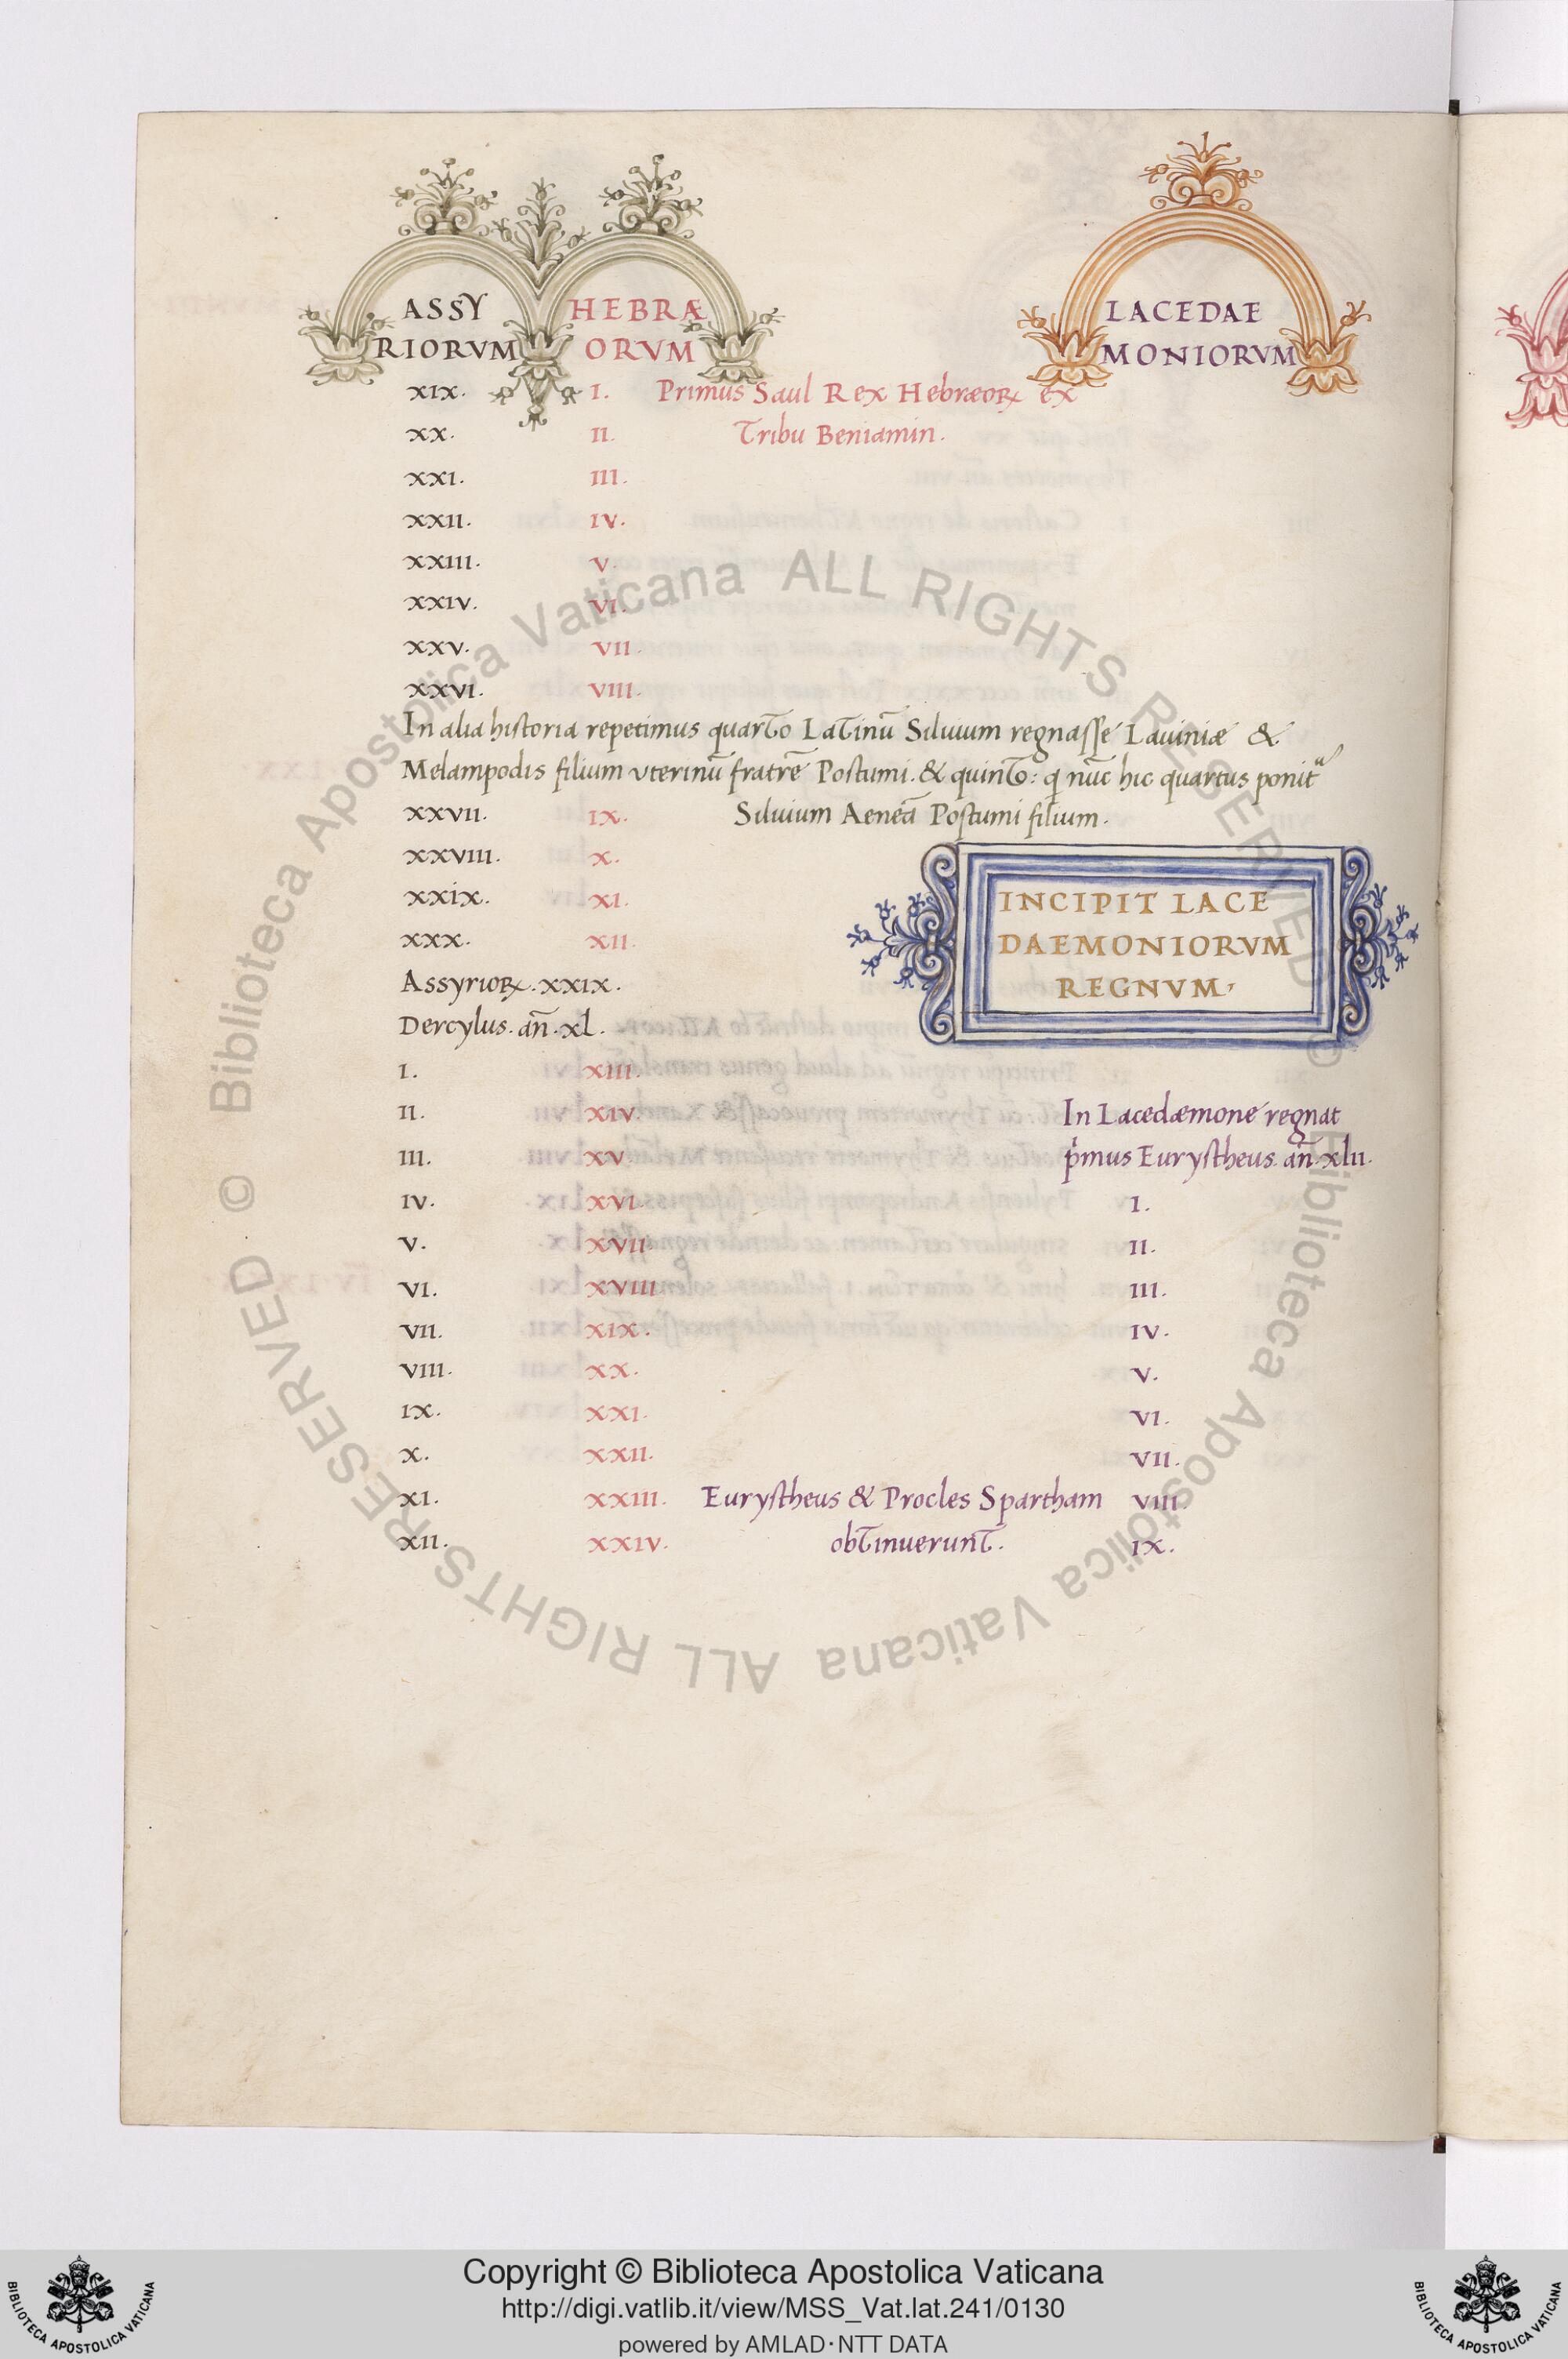 ASSY HEBRÆ LACEDAE
RIORVM ORVM MONIORVM
XIX. I. Primus Saul Rex Hebræoꝝ ex
XX. II. Tribu Beniamin.
XXI. III.
XXII. IV.
XXIII. V.
XXIV. VI.
XXV. VII.
XXVI. VIII.
In alia historia repetimus quarto Latinū Siluium regnasse Lauiniæ &
Melampodis filium vterinū fratrē Postumi. & quinto: q nūc hic quartus ponit
XXVII. IX. Siluium Aeneā Postumi filium.
XXVIII. X.
XXIX. XI. INCIPIT LACE
XXX. XII. DAEMONIORVM
Assyrioꝝ. XXIX. REGNVM,
Dercylus. an̄. xl.
I. XIII.
II. XIV. In Lacedæmone regnat
III. XV. pimus Eurystheus. an̄. xlii.
IV. XVI. I.
V. XVII. II.
VI. XVIII. III.
VII. XIX. IV.
VIII. XX. V.
IX. XXI. VI.
X. XXII. VII.
XI. XXIII. Eurystheus & Procles Spartham VIII.
XII. XXIV. obtinuerunt. IX.
© Biblioteca Apostolica Vaticana ALL RIGHTS RESERVED
© Biblioteca Apostolica Vaticana ALL RIGHTS RESERVED
Copyright © Biblioteca Apostolica Vaticana
http://digi.vatlib.it/view/MSS_Vat.lat.241/0130
powered by AMLAD·NTT DATA
BIBLIOTECA APOSTOLICA VATICANA
BIBLIOTECA APOSTOLICA VATICANA